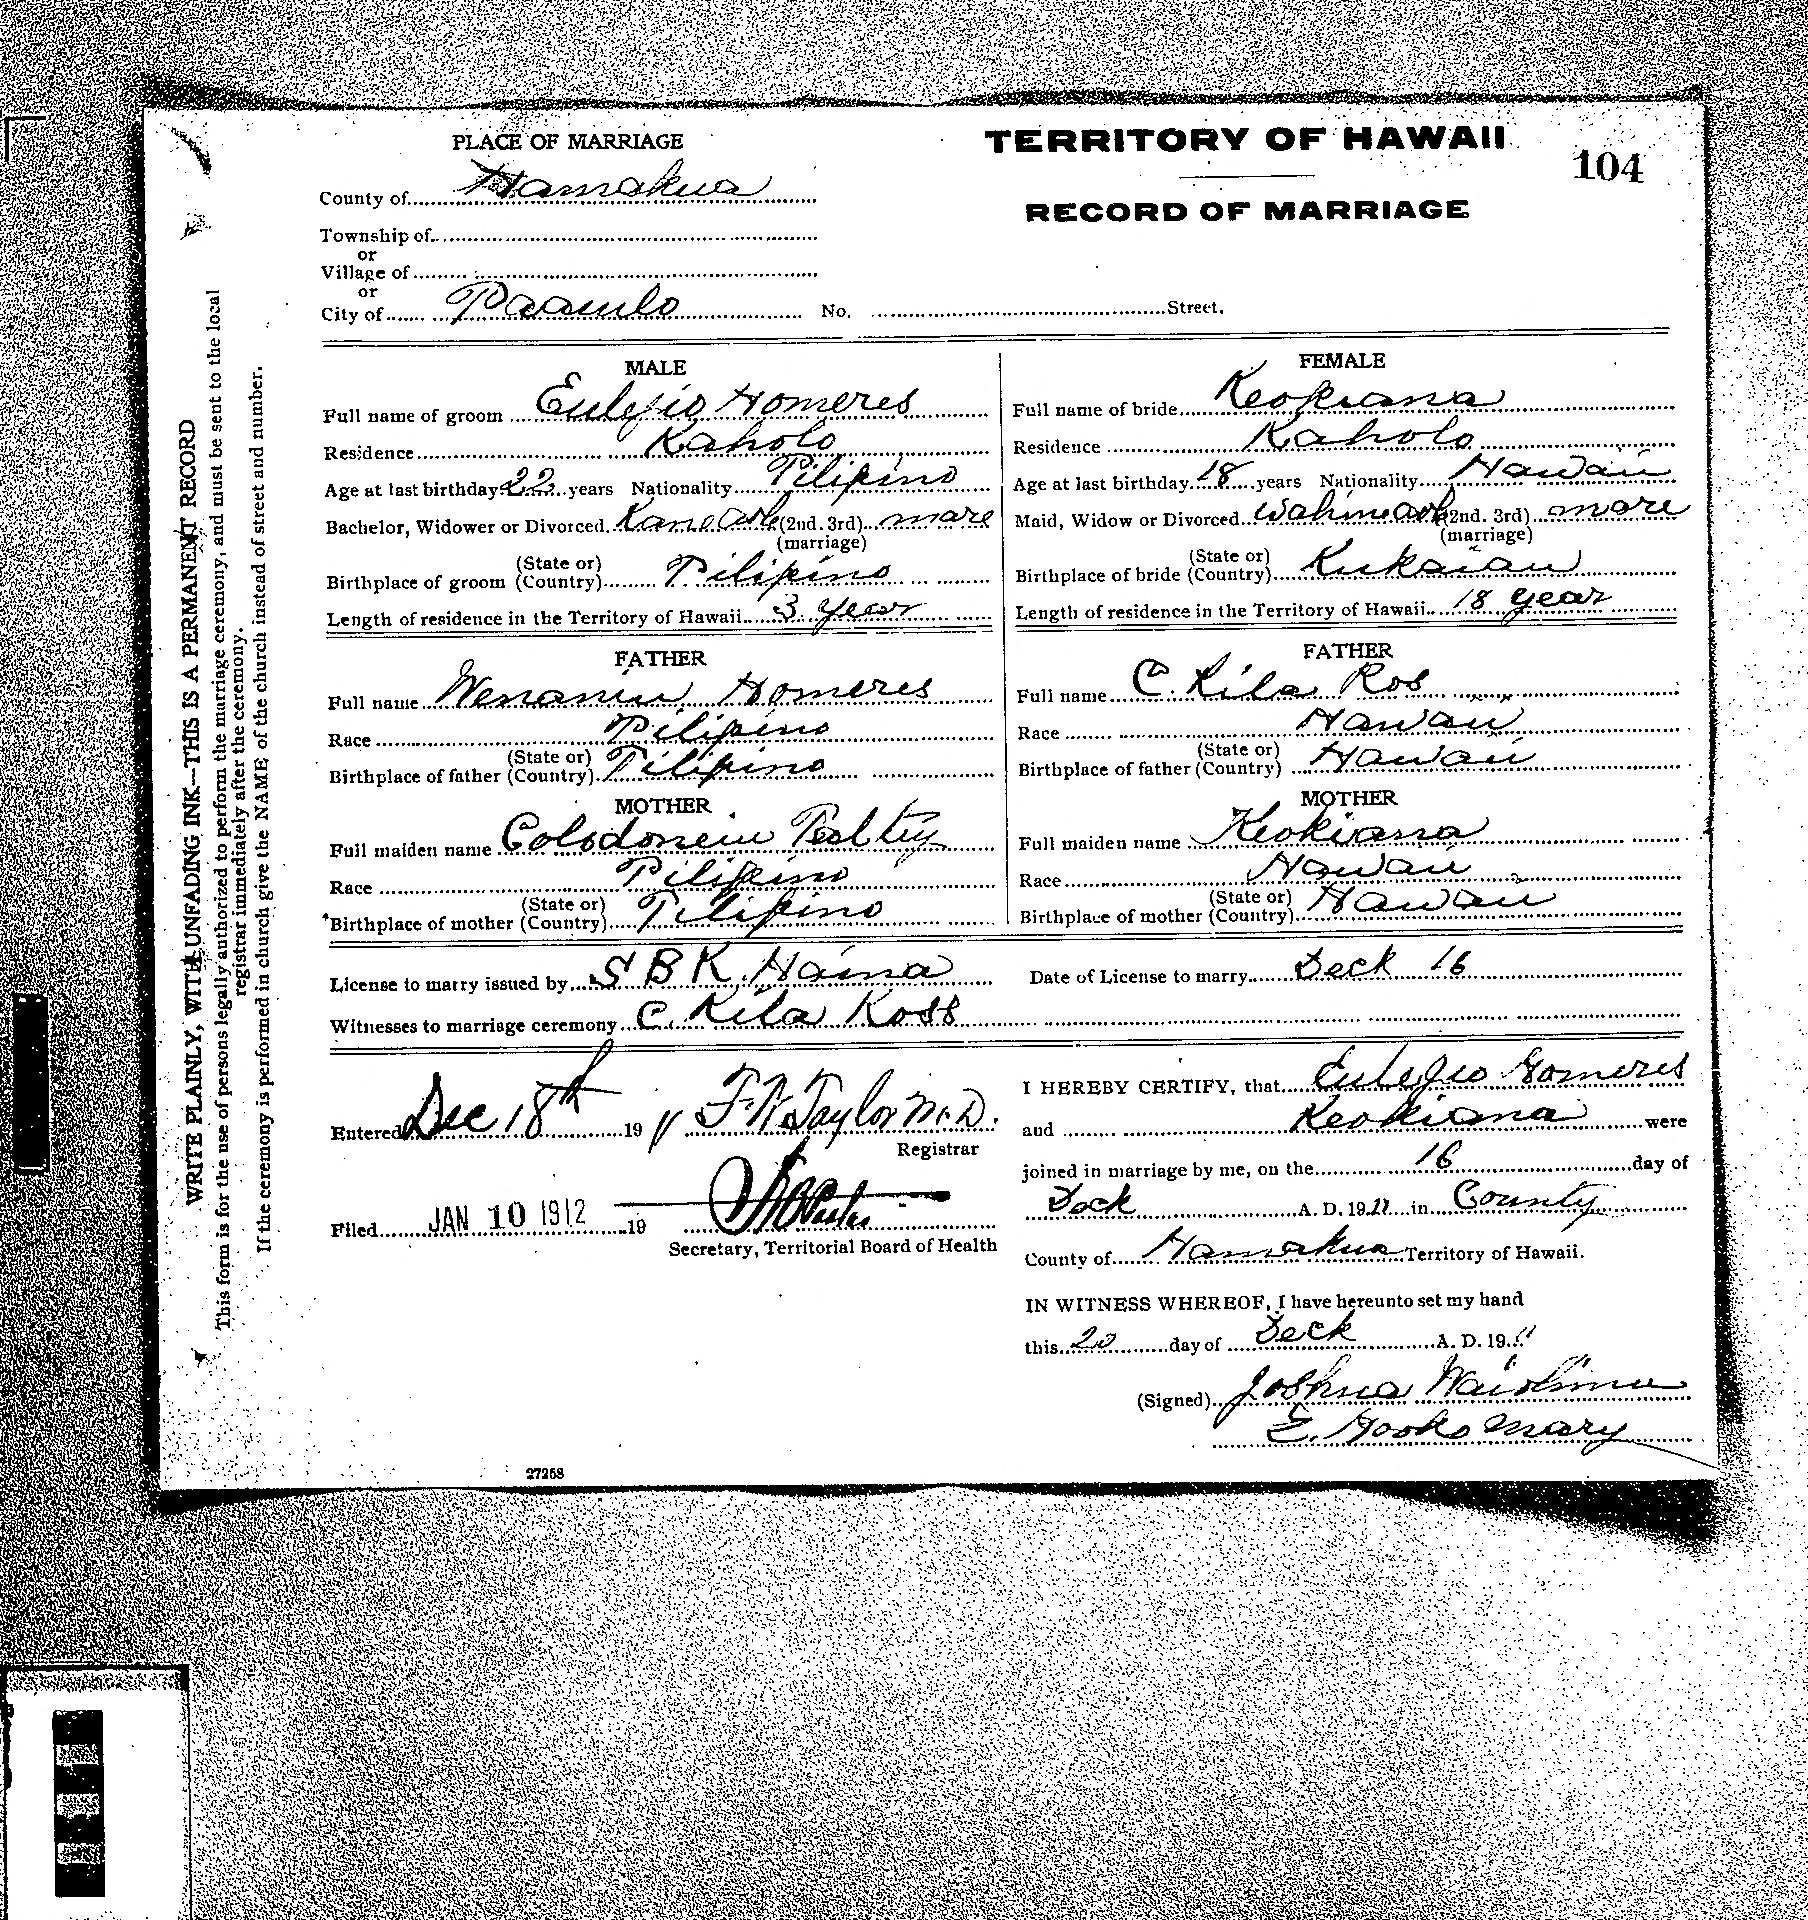 PLACE OF MARRIAGE
TERRITORY OF HAWAII
104
County of Hamakua
RECORD OF MARRIAGE
Township of
or
Village of
or
City of Paauilo No. Street.
WRITE PLAINLY, WITH UNFADING INK—THIS IS A PERMANENT RECORD
This form is for the use of persons legally authorized to perform the marriage ceremony, and must be sent to the local
registrar immediately after the ceremony.
If the ceremony is performed in church give the NAME of the church instead of street and number.
MALE
Full name of groom Eulejio Homeres
Residence Kaholo
Age at last birthday 22 years Nationality Pilipino
Bachelor, Widower or Divorced Kane (2nd. 3rd) mare
(marriage)
Birthplace of groom (State or Country) Pilipino
Length of residence in the Territory of Hawaii 3 year
FATHER
Full name Homeres
Race Pilipino
Birthplace of father (State or Country) Pilipino
MOTHER
Full maiden name
Race Pilipino
Birthplace of mother (State or Country) Pilipino
FEMALE
Full name of bride Keokiana
Residence Kaholo
Age at last birthday 18 years Nationality Hawaii
Maid, Widow or Divorced Wahine (2nd. 3rd) mare
(marriage)
Birthplace of bride (State or Country) Kukaiau
Length of residence in the Territory of Hawaii 18 year
FATHER
Full name C. Kila Ros
Race Hawaii
Birthplace of father (State or Country) Hawaii
MOTHER
Full maiden name Keokiana
Race Hawaii
Birthplace of mother (State or Country) Hawaii
License to marry issued by S B K. Haina Date of License to marry Deck 16
Witnesses to marriage ceremony C. Kila Koss
Entered Dec 18th 1911 F. W. Taylor M.D.
Registrar
Filed JAN 10 1912 19
Secretary, Territorial Board of Health
I HEREBY CERTIFY, that Eulejio Homeres
and Keokiana were
joined in marriage by me, on the 16 day of
Deck A. D. 1911 in County
County of Hamakua Territory of Hawaii.
IN WITNESS WHEREOF, I have hereunto set my hand
this 20 day of Deck A. D. 1911
(Signed) Joshua
E. Hooko mary
27258